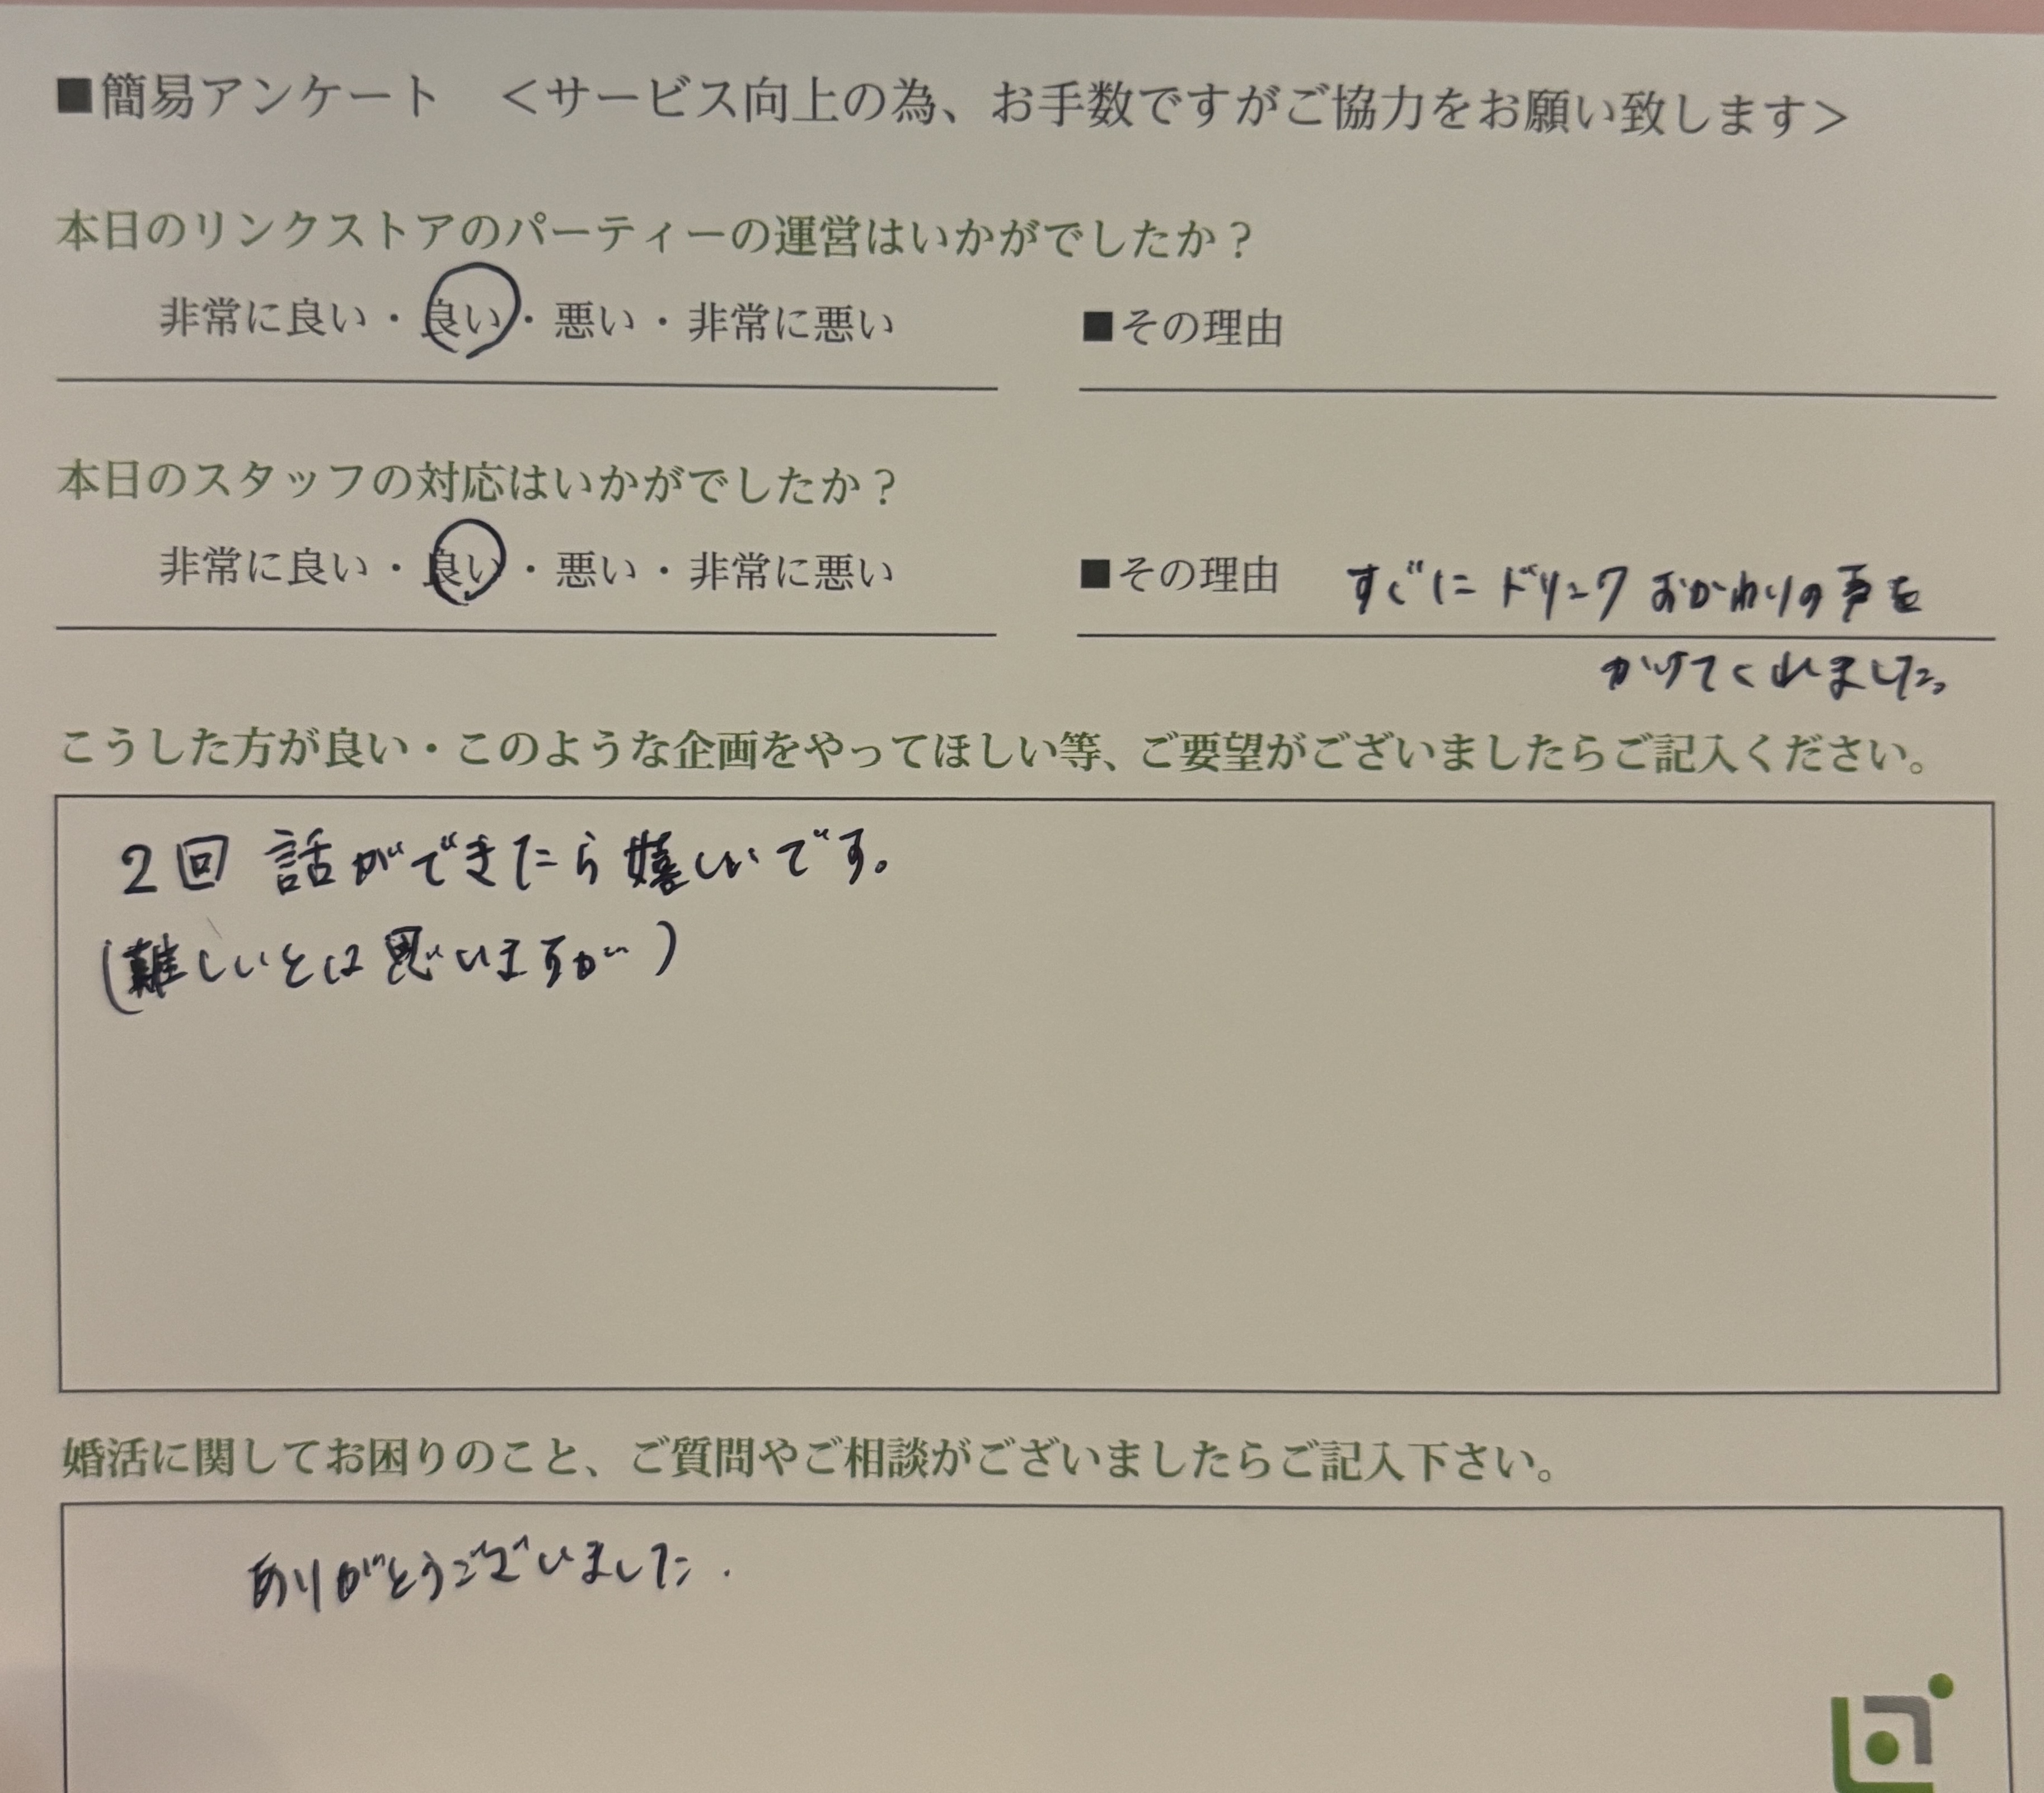 ■簡易アンケート　＜サービス向上の為、お手数ですがご協力をお願い致します＞
本日のリンクストアのパーティーの運営はいかがでしたか？
非常に良い・良い・悪い・非常に悪い　■その理由
本日のスタッフの対応はいかがでしたか？
非常に良い・良い・悪い・非常に悪い　■その理由　すぐにドリンクおかわりの声を
かけてくれました。
こうした方が良い・このような企画をやってほしい等、ご要望がございましたらご記入ください。
2回 話ができたら嬉しいです。
(難しいとは思いますが)
婚活に関してお困りのこと、ご質問やご相談がございましたらご記入下さい。
ありがとうございました.